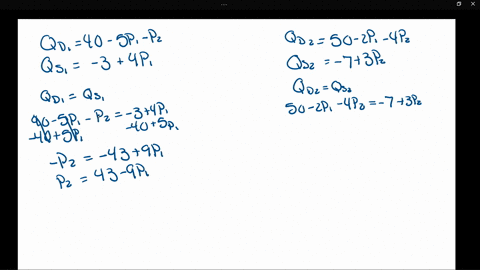 QD₁ = 40 - 5P₁ - P₂
QS₁ = -3 + 4P₁
QD₁ = QS₁
40 - 5P₁ - P₂ = -3 + 4P₁
-40 + 5P₁ -40 + 5P₁
-P₂ = -43 + 9P₁
P₂ = 43 - 9P₁
QD₂ = 50 - 2P₁ - 4P₂
QS₂ = -7 + 3P₂
QD₂ = QS₂
50 - 2P₁ - 4P₂ = -7 + 3P₂